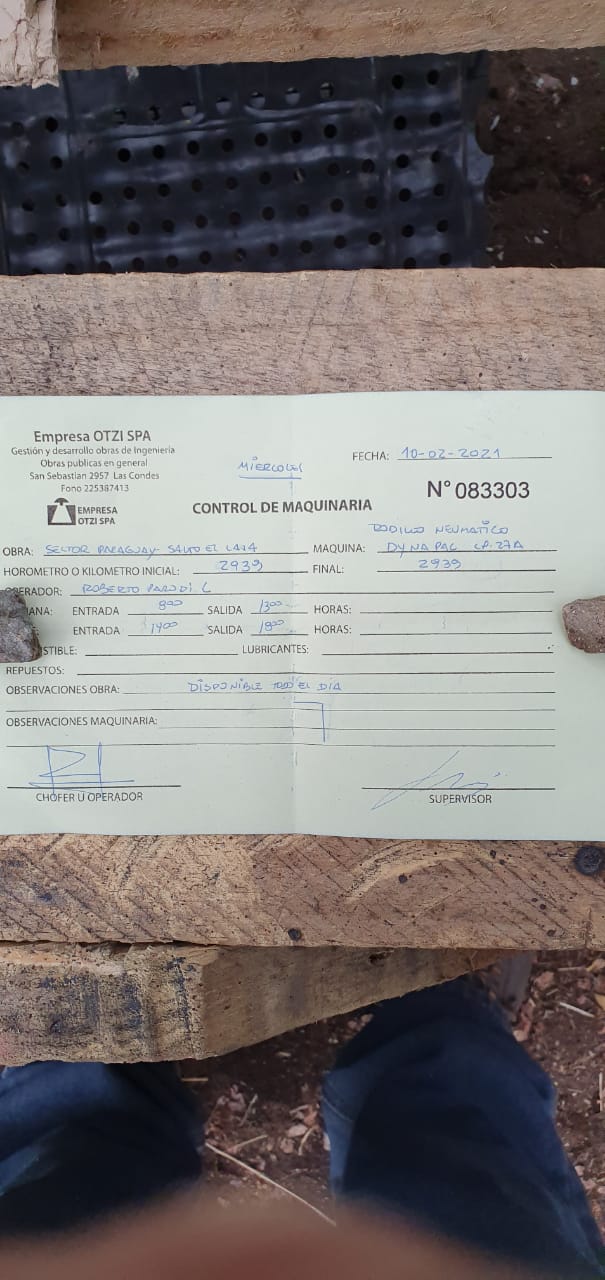 Empresa OTZI SPA
Gestión y desarrollo obras de Ingeniería
Obras publicas en general
San Sebastian 2957 Las Condes
Fono 225387413
EMPRESA
OTZI SPA
MIERCOLES
FECHA: 10-02-2021
N° 083303
CONTROL DE MAQUINARIA
RODILLO NEUMATICO
OBRA: SECTOR PARAGUAY- SALTO EL LAJA MAQUINA: DYNAPAC CP.27A
HOROMETRO O KILOMETRO INICIAL: 2939 FINAL: 2939
ERADOR: ROBERTO PARODI C
ANA: ENTRADA 800 SALIDA 1300 HORAS:
ENTRADA 1400 SALIDA 1800 HORAS:
STIBLE: LUBRICANTES:
REPUESTOS:
OBSERVACIONES OBRA: DISPONIBLE TODO EL DIA
OBSERVACIONES MAQUINARIA:
CHOFER U OPERADOR SUPERVISOR